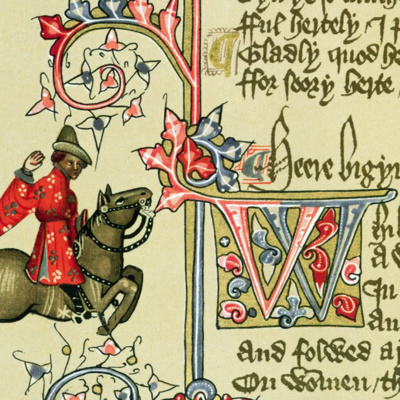 fful hertely I p
Gladly quod he
ffor soory herte
Heere bigyn
Whil
A w
In
An
And folwed ay
On women / th